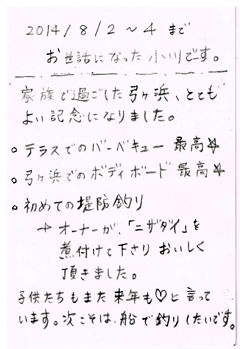 2014/8/2～4 まで
お世話になった小川です。
家族で過ごした弓ヶ浜、とても
よい記念になりました。
○ テラスでのバーベキュー 最高☆
○ 弓ヶ浜でのボディボード 最高☆
○ 初めての堤防釣り
→ オーナーが、「ニザダイ」を
煮付けて下さり おいしく
頂きました。
子供たちもまた来年も♡と言って
います。次こそは、船で釣りしたいです。